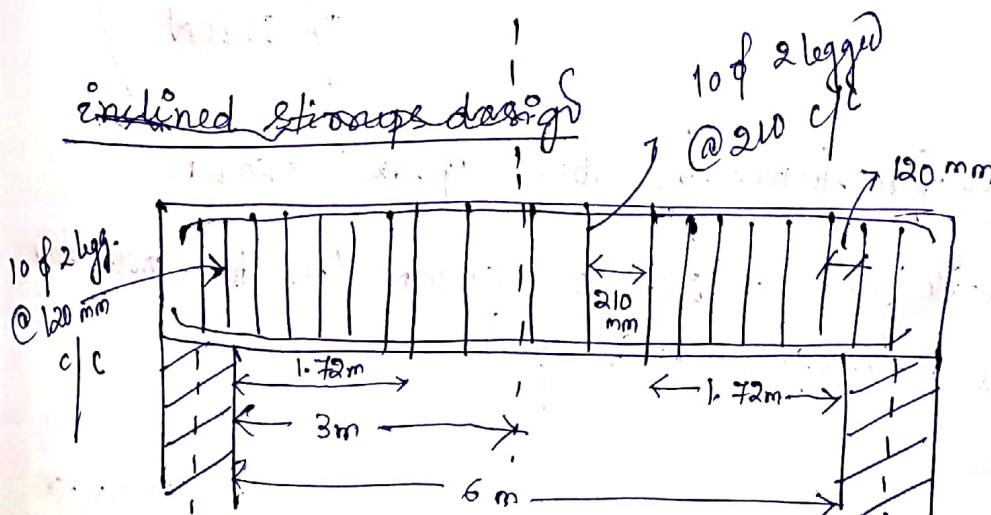 inclined stirrups design
10 ϕ 2 legged
@ 210 c/c
120 mm
10 ϕ 2 legg.
@ 120 mm
c/c
210
mm
1.72m
1.72m
3m
6 m